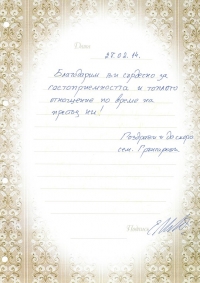 Дата:
28.02.14.
Благодарим Ви сърдечно за
гостоприемността и топлото
отношение по време на
престоя ни!
Поздрави и до скоро
сем.